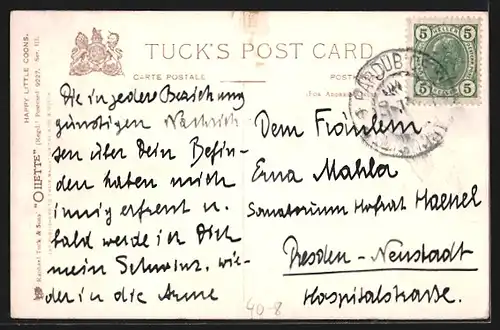 TUCK'S POST CARD
CARTE POSTALE
POST
(For Address
HAPPY LITTLE COONS.
Raphael Tuck & Sons' "OILETTE" (Regd.) Postcard 9227. Ser. III.
5 HELLER 5
5 5
PARDUB
Die in jeder Beziehung
günstigen Nachrich
ten über Dein Befin-
den haben mich
innig erfreut u.
bald werde ich Dich
mein wie-
der in die Arme
Dem Fräulein
Erna Mahla
Sanatorium Hofrat Haenel
Dresden - Neustadt
Hospitalstraße.
40-8